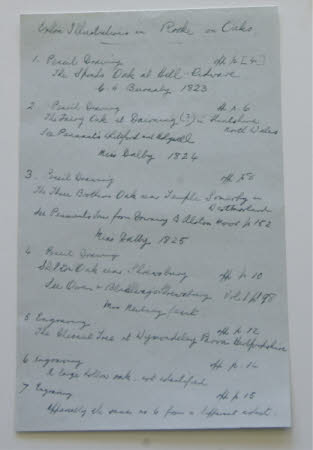 Extra Illustrations in Rooke on Oaks
1. Pencil Drawing opp p. [4]
The Sparks Oak at
1823
2. Pencil Drawing opp p. 6
The Fairy Oak at Downing (?) in Flintshire
North Wales
See Pennant's Whiteford and Holywell
Miss Dalby 1824
3. Pencil Drawing opp p 8
The Three Brothers Oak near Temple Sowerby in
Westmorland
See Pennant's tour from Downing to Alston Moor p 152
Miss Dalby 1825
4 Pencil Drawing opp p. 10
Oak near Shrewsbury
See Owen & Blakeway's Shrewsbury Vol. 1
Miss
5 Engraving opp p. 12
The Tree at Wymondley Priory Hertfordshire
6 Engraving opp p. 14
A large hollow oak, not identified
7 Engraving opp p. 15
Apparently the same as 6 from a different